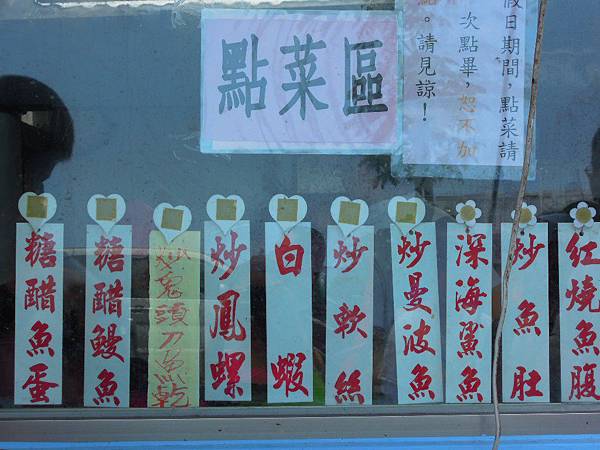 點菜區
假日期間，點菜請
次點畢，恕不加
點。請見諒！
糖醋魚蛋
糖醋鰻魚
炒鬼頭刀魚乾
炒鳳螺
白蝦
炒軟絲
炒曼波魚
深海鯊魚
炒魚肚
紅燒魚腹